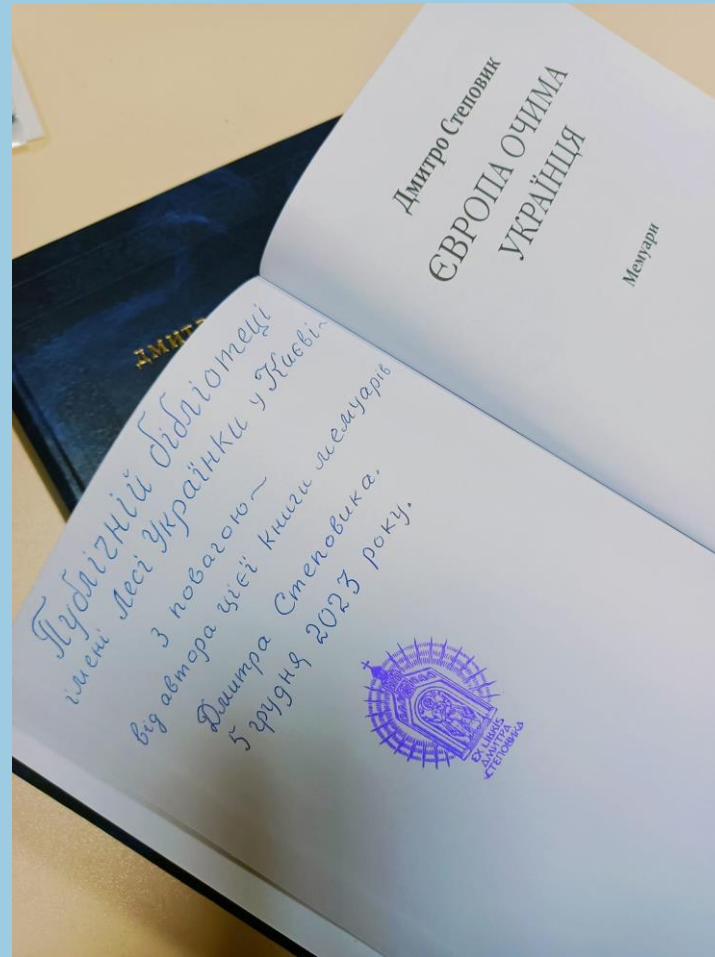 Дмитро Степовик
ЄВРОПА ОЧИМА
УКРАЇНЦЯ
Мемуари
Публічній бібліотеці
імені Лесі Українки у Києві –
з повагою –
від автора цієї книги мемуарів
Дмитра Степовика.
5 грудня 2023 року.
EX LIBRIS
ДМИТРА
СТЕПОВИКА